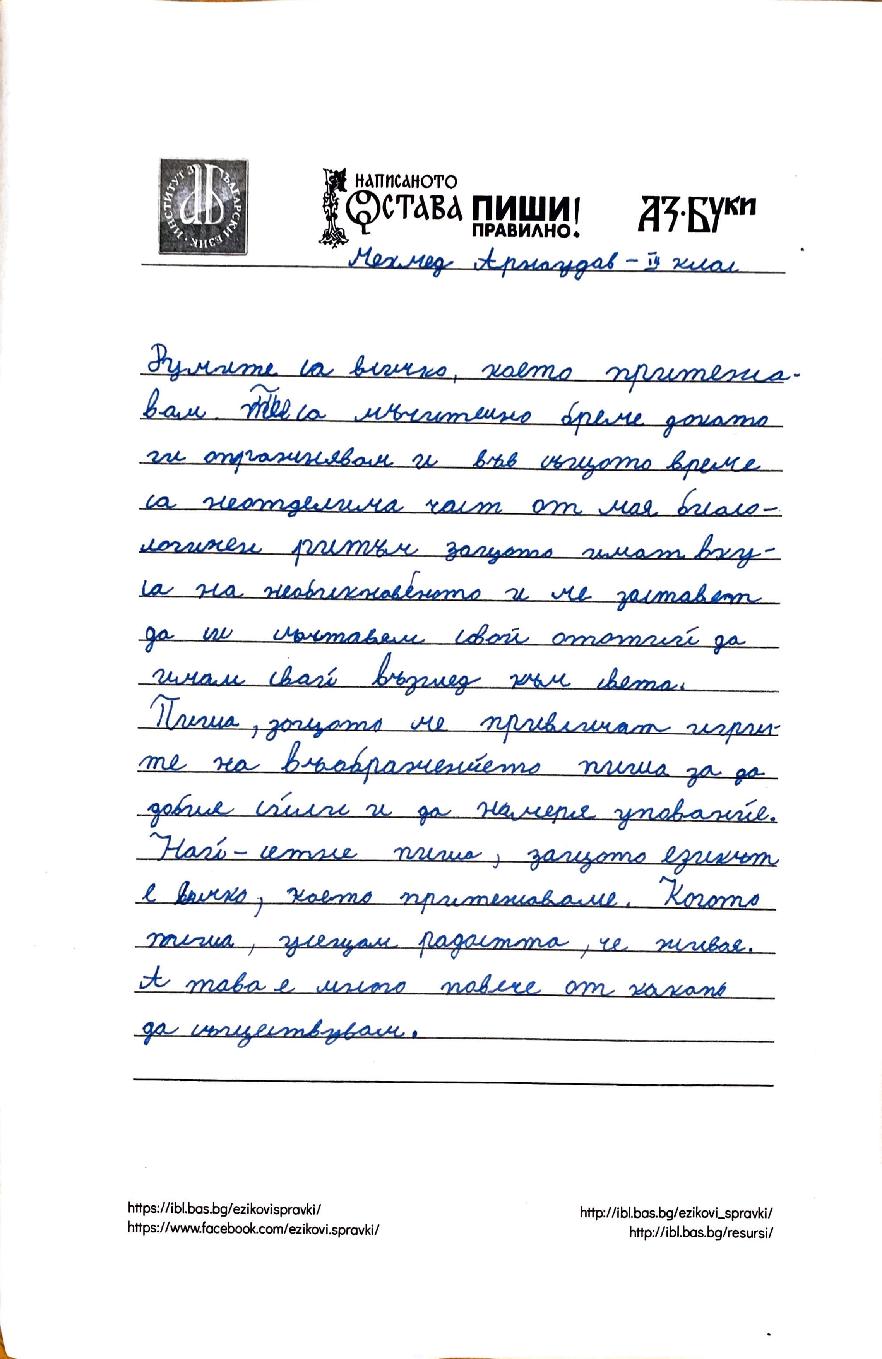 ИНСТИТУТ ЗА БЪЛГАРСКИ ЕЗИК
НАПИСАНОТО
ОСТАВА ПИШИ!
ПРАВИЛНО!
АЗ·БУКИ
Мехмед Арнаудав – IV клас
Думите са всичко, което притежа-
вам. Те са мъчително бреме докато
ги опразнявам и във същото време
са неотделима част от мая биало-
логичен ритъм защото имат вку-
са на необикновеното и ме заставет
да си съставем свой ототий да
имам свай възглед към света.
Пиша, защото ме привличат игри-
те на въабражението пиша за да
добия сили и да намеря упование.
Най-сетне пиша, защото езикът
е всичко, което притежаваме. Когото
пиша, усещам радостта, че живея.
А тава е много повече от какато
да съществувам.
https://ibl.bas.bg/ezikovispravki/
https://www.facebook.com/ezikovi.spravki/
http://ibl.bas.bg/ezikovi_spravki/
http://ibl.bas.bg/resursi/